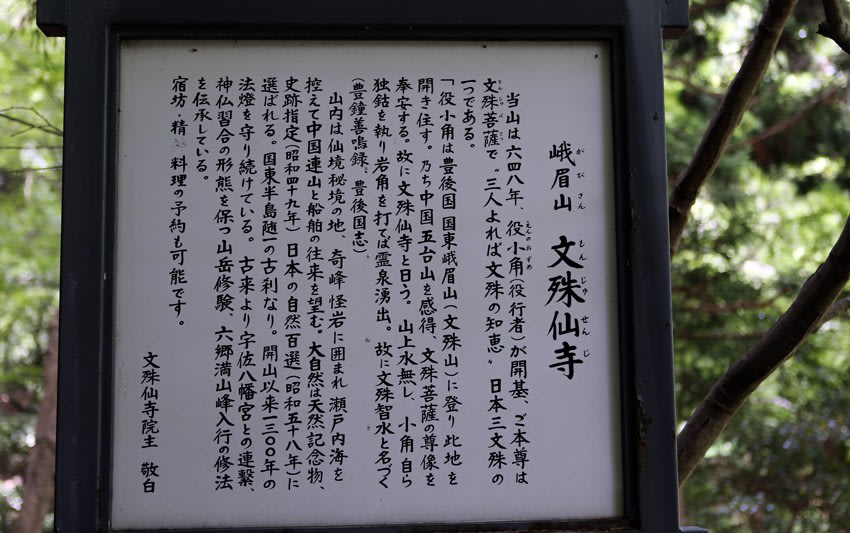 峨眉山 文殊仙寺
がびさん もんじゅせんじ
当山は六四八年、役小角(役行者)が開基、ご本尊は
えんのおずめ
文殊菩薩で〝三人よれば文殊の知恵〟日本三文殊の
もんじゅぼさつ
一つである。
「役小角は豊後国国東峨眉山(文殊山)に登り此地を
開き住す。乃ち中国五台山を感得、文殊菩薩の尊像を
奉安する。故に文殊仙寺と曰う。山上水無し、小角自ら
独鈷を執り岩角を打てば霊泉湧出。故に文殊智水と名づく
(豊鐘善鳴録、豊後国志)
山内は仙境秘境の地、奇峰怪岩に囲まれ瀬戸内海を
控えて中国連山と船舶の往来を望む。大自然は天然記念物、
史跡指定(昭和四十九年)日本の自然百選(昭和五十八年)に
選ばれる。国東半島随一の古刹なり。開山以来一三〇〇年の
法燈を守り続けている。古来より宇佐八幡宮との連繋、
神仏習合の形態を保つ山岳修験、六郷満山峰入行の修法
を伝承している。
宿坊・精 料理の予約も可能です。
文殊仙寺院主 敬白